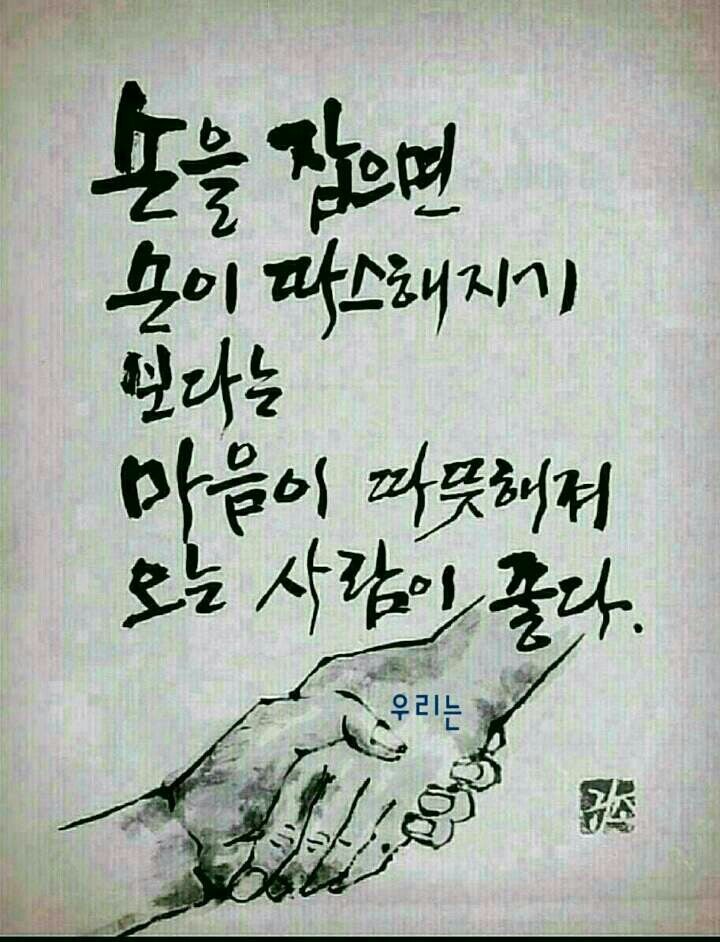 손을 잡으면
손이 따스해지기
보다는
마음이 따뜻해져
오는 사람이 좋다.
우리는